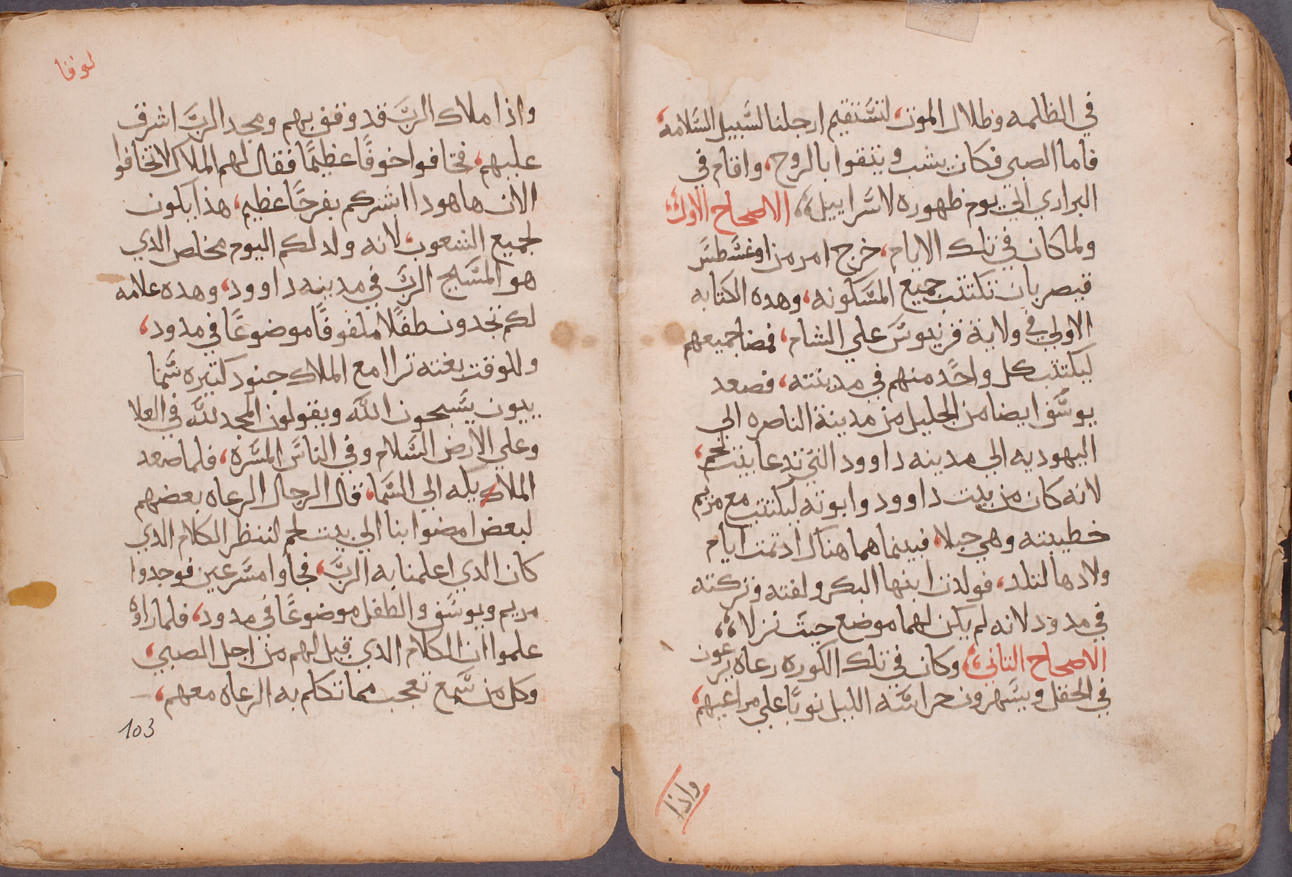 في الظلمه وظلال الموت، لتستقيم ارجلنا لسبيل السلامه،
فاما الصبي فكان ينشب ويتقوا بالروح، واقام في
البراري الي يوم ظهوره لاسراييل، الاصحاح الاول،
ولما كان في تلك الايام، خرج امر من اوغسطس
قيصر بان تكتتب جميع المسكونه، وهده الكتابه
الاولي في ولاية قرينوس علي الشام، فمضا جميعهم
ليكتتب كل واحد منهم في مدينته، فصعد
يوسف ايضا من الجليل من مدينة الناصره الي
اليهوديه الي مدينه داوود التي تدعا بيت لحم،
لانه كان من بيت داوود وابوته ليكتتب مع مريم
خطيبته وهي حبلا، فبينما هما هناك اد تمت ايام
ولادها لتلد، فولدت ابنها البكر ولفته وتركته
في مدود لانه لم يكن لهما موضع حيث نزلا،
الاصحاح التاني، وكان في تلك الكوره رعاه يرعون
في الحقل ويسهرون حراسة الليل نوبًا علي مراعيهم،
واذا
لوقا
واذا ملاك الرب قد وقف بهم ومجد الرب اشرق
عليهم، فخافوا خوفًا عظيمًا فقال لهم الملاك لا تخافوا
الان ها هودا ابشركم بفرحًا عظيم، هذا يكون
لجميع الشعوب، لانه ولد لكم اليوم مخلص الدي
هو المسيح الرب في مدينه داوود، وهده علامه
لكم تجدون طفلًا ملفوفًا موضوعًا في مدود،
وللوقت بغته ترا امع الملاك جنود كتيره سما
ييون يسبحون الله ويقولون المجد لله في العلا
وعلي الارض السلام وفي الناس المسره، فلما صعد
الملايكه الي السما، قال الرجال الرعاه بعضهم
لبعض امضوا بنا الي بيت لحم لننظر الكلام الدي
كان الدي اعلمنا به الرب، فجاوا مسرعين فوجدوا
مريم ويوسف والطفل موضوعًا في مدود، فلما راوه
علموا ان الكلام الدي قيل لهم من اجل الصبي،
وكل من سمع تعجب مما تكلم به الرعاه معهم،
103